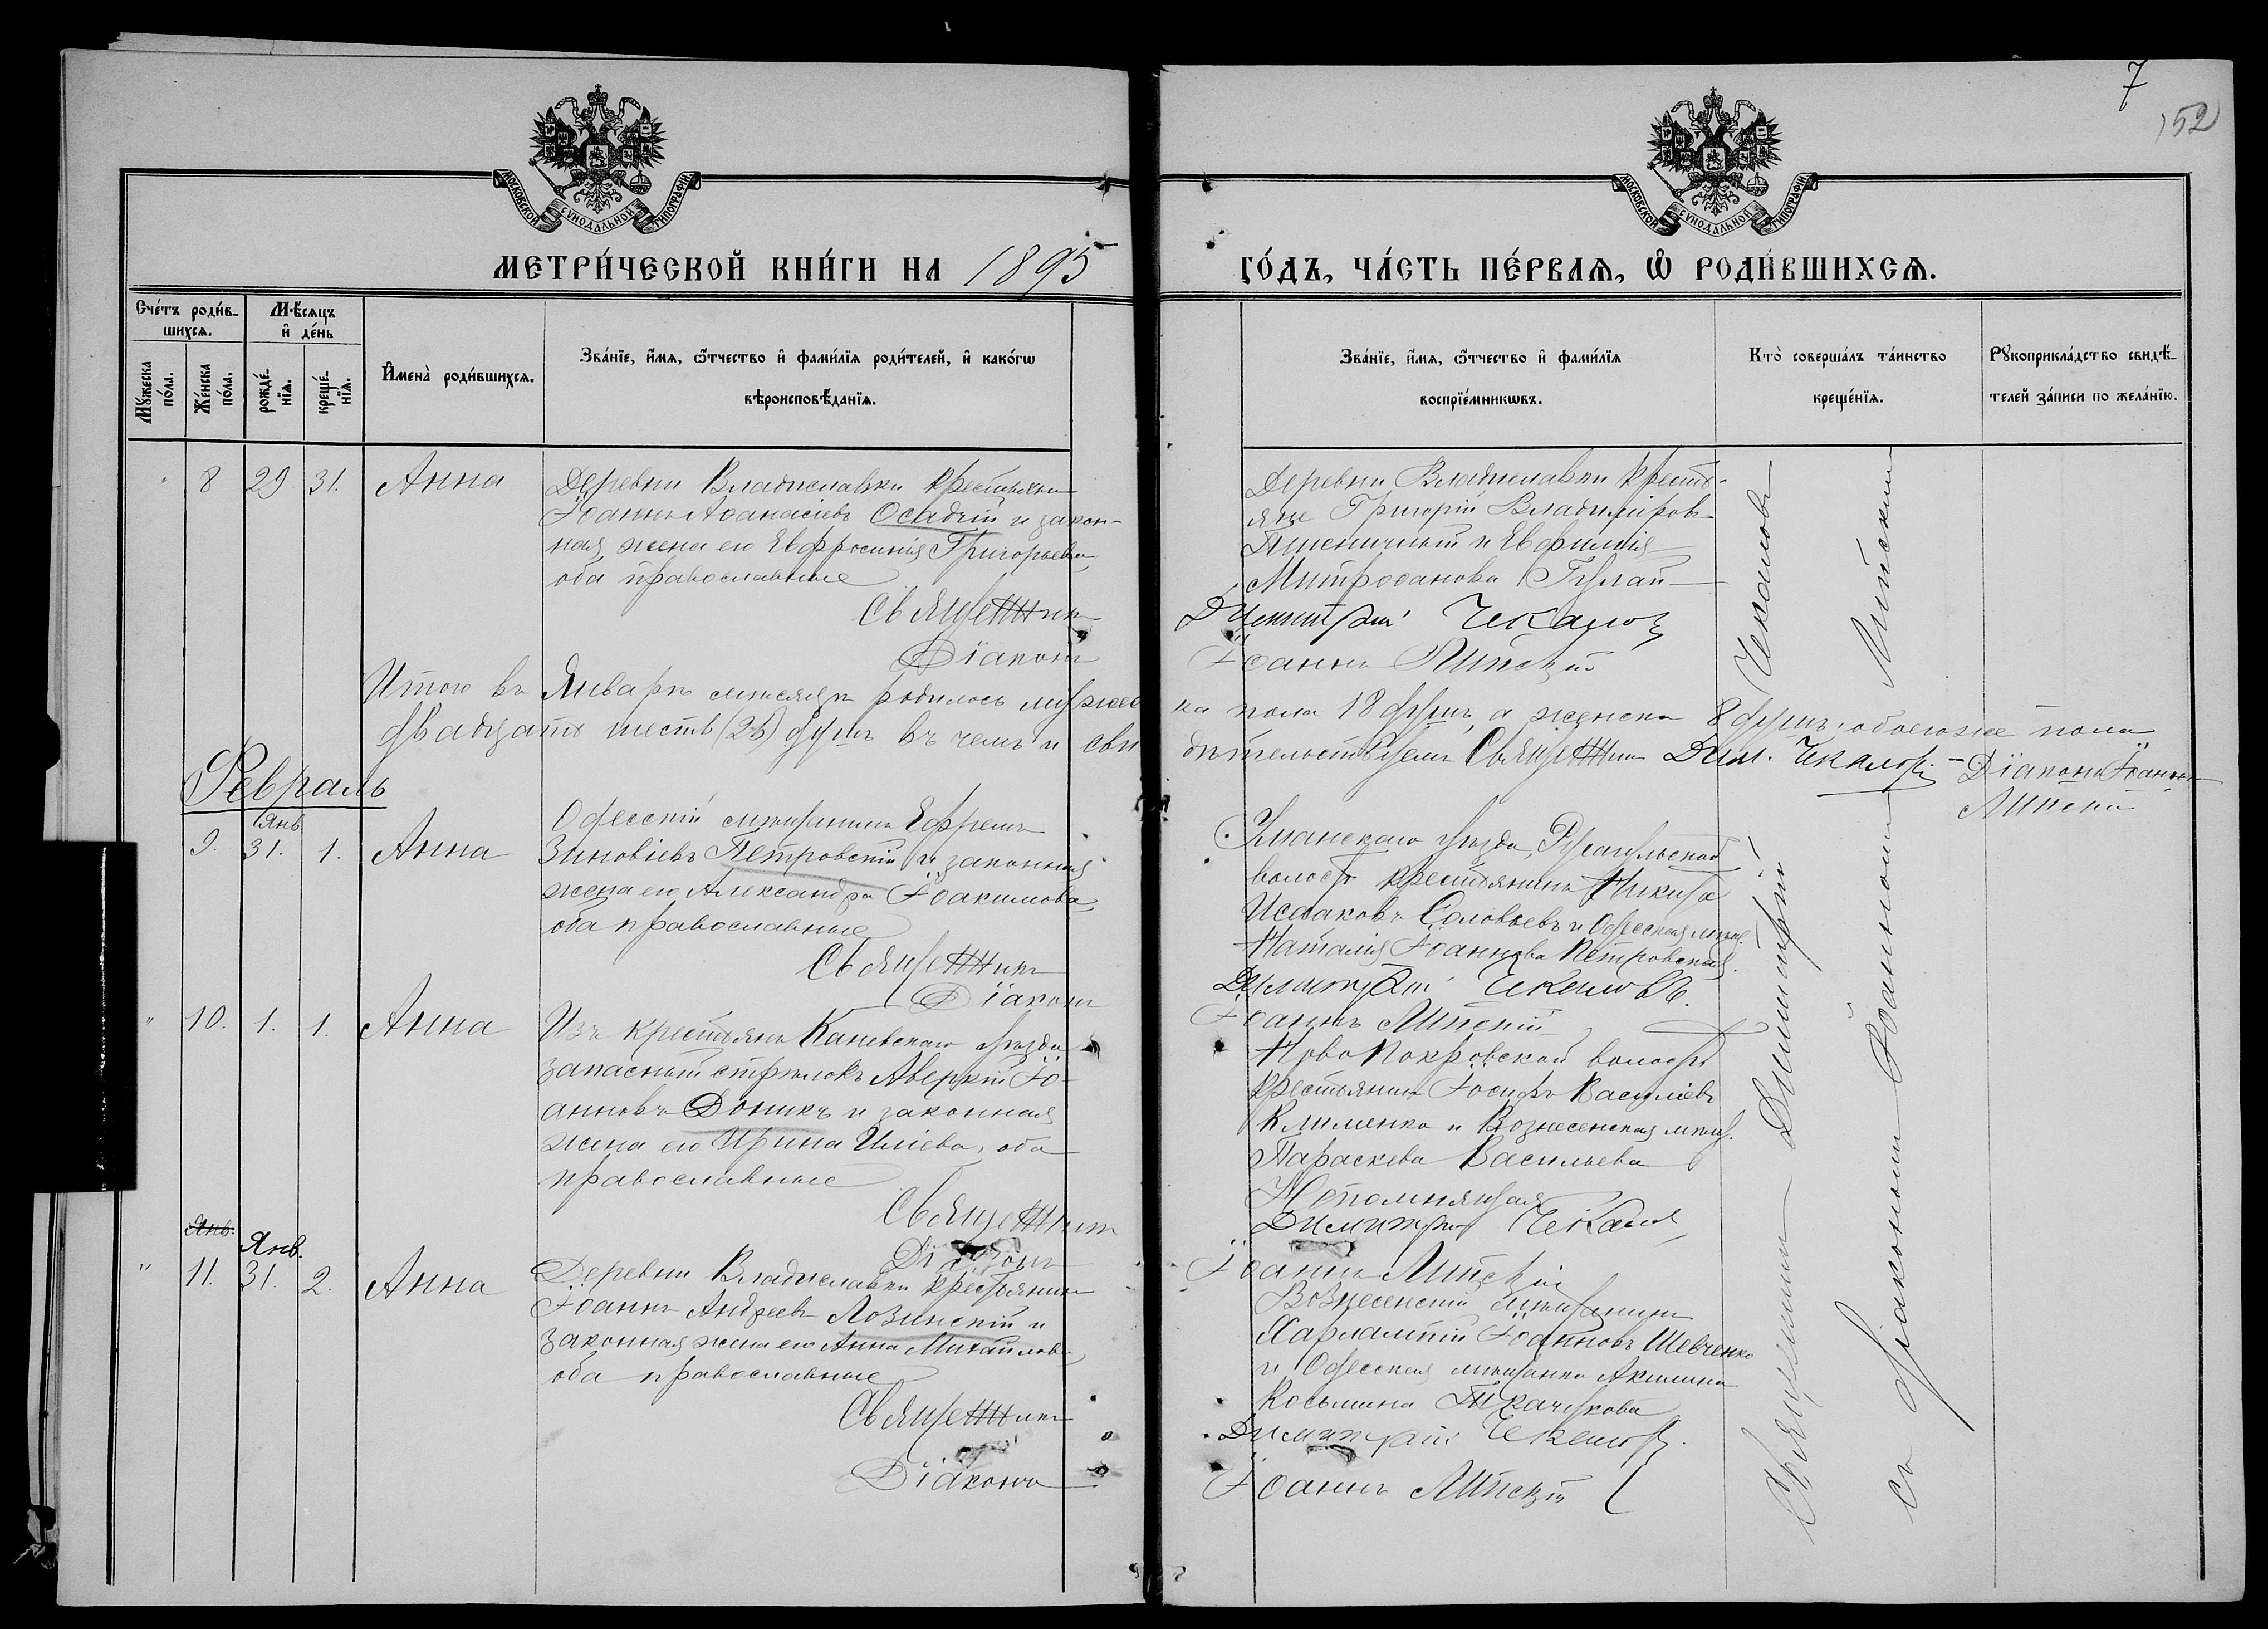 7
152
МОСКОВСКОЙ СѴНОДАЛЬНОЙ ТИПОГРАФІИ
МОСКОВСКОЙ СѴНОДАЛЬНОЙ ТИПОГРАФІИ
МЕТРИ́ЧЕСКОЙ КНИ́ГИ НА 1895
ГО́ДЪ, ЧА́СТЬ ПЕ́РВАѦ, Ѽ РОДИ́ВШИХСѦ.
Сче́тъ роди́в-
шихсѧ.
Мꙋ́жеска
по́ла.
Же́нска
по́ла.
Мѣ́сѧцъ
и҆ де́нь
рожде́-
нїѧ.
креще́-
нїѧ.
И҆мена̀ роди́вшихсѧ.
Зва́нїе, и҆́мѧ, ѻ҆́тчество и҆ фами́лїѧ роди́телей, и҆ како́гѡ
вѣроисповѣ́данїѧ.
Зва́нїе, и҆́мѧ, ѻ҆́тчество и҆ фами́лїѧ
воспрїе́мникѡвъ.
Кто̀ соверша́лъ та́инство
креще́нїѧ.
Рꙋкоприкла́дство свидѣ́-
телей за́писи по жела́нїю.
" 8 29 31. Анна
Деревни Владиславки крестьянин
Іоаннъ Аѳанасіевъ Осадчій и закон-
ная жена его Евфросинія Григорьева
оба православные
Священникъ
Діаконъ
Деревни Владиславки крестья-
яне Григорій Владиміровъ
Пшеничный и Евфимія
Митрофанова Гулай
Димитрій Чекановъ
Іоаннъ Липскій
Итого въ Январѣ мѣсяцѣ родилось мужес
ка пола 18 душъ, а женска 8 душъ, обоего же пола
двадцать шесть (26) душъ въ чемъ и сви
дѣтельствуемъ Священникъ Дим. Чекановъ - Діаконъ Іоаннъ
Липскій
Февраль
9. Янв. 31. 1. Анна
Одесскій мѣщанинъ Ефремъ
Зиновіевъ Петровскій и законная
жена его Александра Іоакимова
оба православные
Священникъ
Діаконъ
Уманскаго уѣзда,
волости крестьянинъ Никита
Исааковъ Соловьевъ и Одесская мѣщ.
Наталія Іоаннова Петровская.
Димитрій Чекановъ.
Іоаннъ Липскій
" 10. 1. 1. Анна
Изъ крестьянъ Каневскаго уѣзда
запасный стрѣлокъ Аверкій Іо-
анновъ Доникъ и законная
жена его Ирина Иліева, оба
православные
Священникъ
Діаконъ
Ново Покровской волости
крестьянинъ Іосифъ Василіевъ
Клименко и Вознесенская мѣщ.
Параскева Васильева
Непомнящая
Димитрій Чекановъ
Іоаннъ Липскій
Янв.
" 11. Янв. 31. 2. Анна
Деревни Владиславки крестьянинъ
Іоаннъ Андреевъ Лозинскій и
законная жена его Анна Михайлова
оба православные
Священникъ
Діаконъ
Вознесенскій мѣщанинъ
Харлампій Іоанновъ Шевченко
и Одесская мѣщанка Акилина
Косьмина Ткачукова
Димитрій Чекановъ.
Іоаннъ Липскій
Священникъ Димитрій Чекановъ
съ діакономъ Іоанномъ Липскимъ